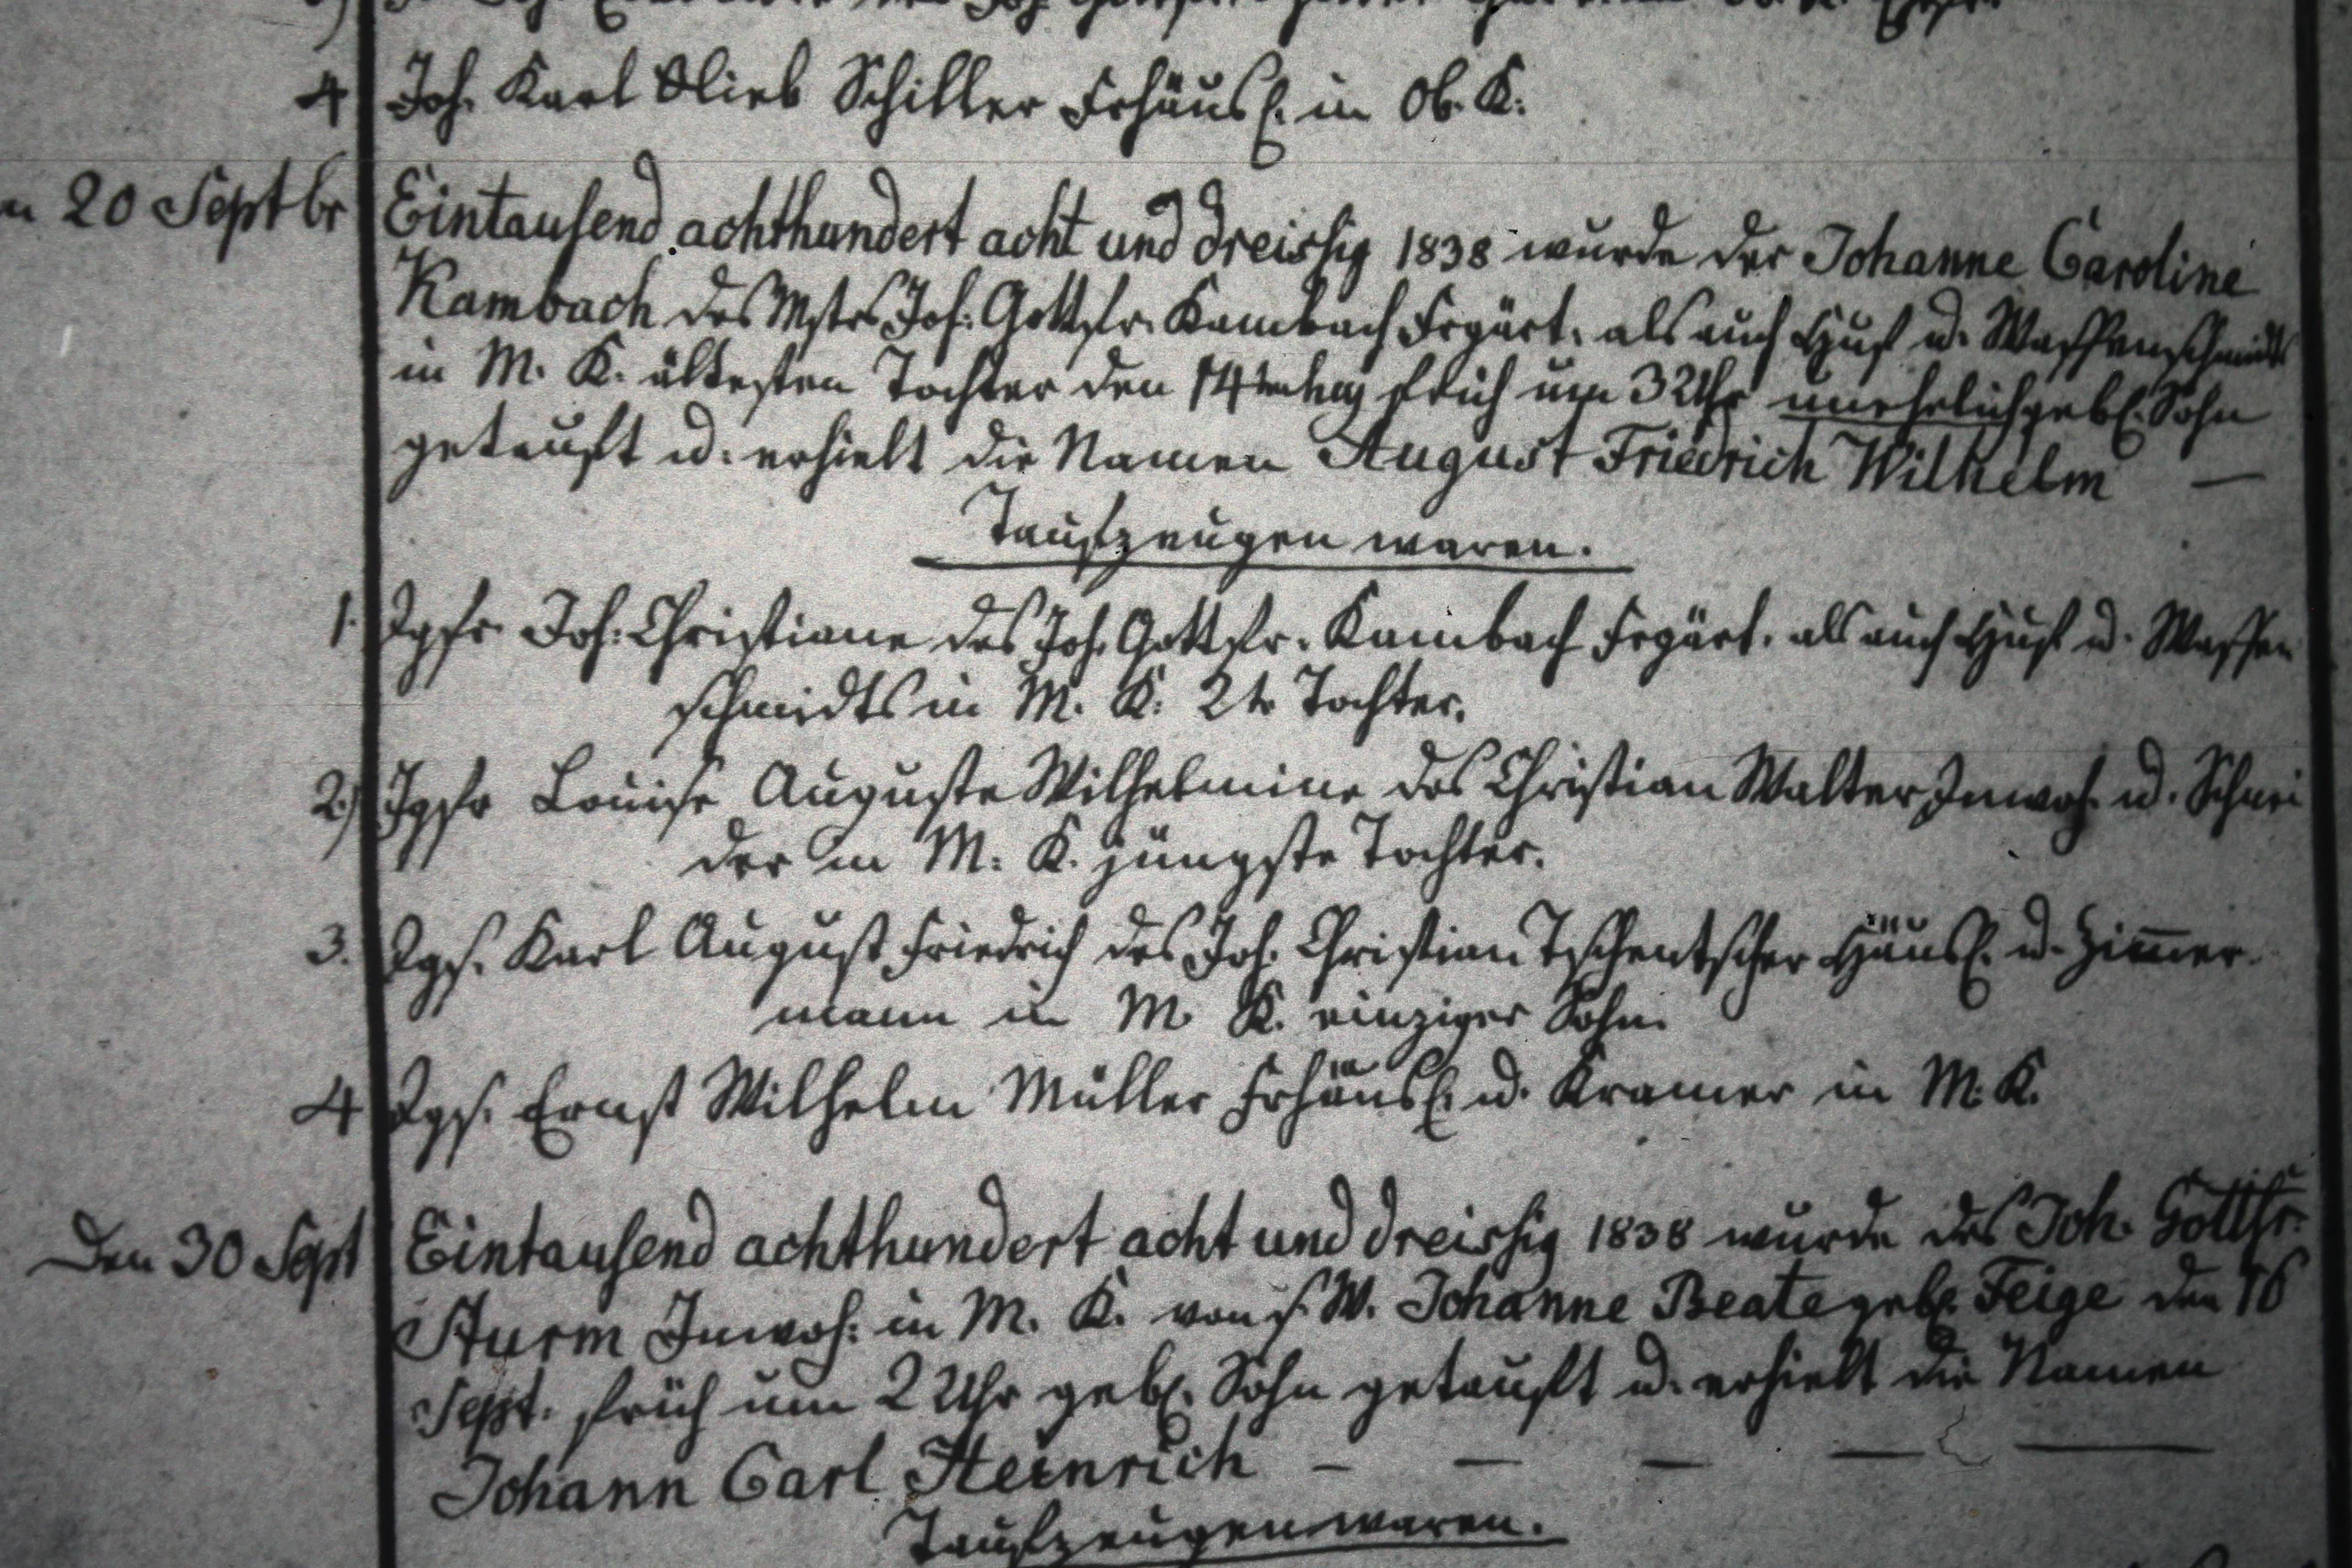 4 Joh. Karl Glieb Schiller Frhäusl. in Ob. K.
20 Septbr Eintausend achthundert acht und dreissig 1838 wurde der Johanne Caroline
Kambach des Mstrs Joh. Gottfr. Kambach Frgärt. als auch Huf u. Waffenschmidts
in M. K. ältesten Tochter den 14ten huj früh um 3 Uhr unehelich gebl. Sohn
getauft u. erhielt die Namen August Friedrich Wilhelm —
Taufzeugen waren.
1. Jgfr Joh. Christiane des Joh. Gottfr. Kambach Frgärt. als auch Huf u. Waffen
schmidts in M. K. 2te Tochter.
2.) Jgfr Louise Auguste Wilhelmine des Christian Walter Inwoh. u. Schnei
der in M. K. jüngste Tochter.
3. Jgs. Karl August Friedrich des Joh. Christian Tschentscher Häusl. u. Zimmer
mann in M. K. einziger Sohn.
4 Jgs. Ernst Wilhelm Müller Frhäusl. u. Kramer in M. K.
Den 30 Sept Eintausend achthundert acht und dreissig 1838 wurde des Joh. Gottfr.
Sturm Inwoh: in M. K. von s. W. Johanne Beate gebl. Feige den 16
Sept. früh um 2 Uhr gebl. Sohn getauft u. erhielt die Namen
Johann Carl Heinrich — — — — —
Taufzeugen waren.